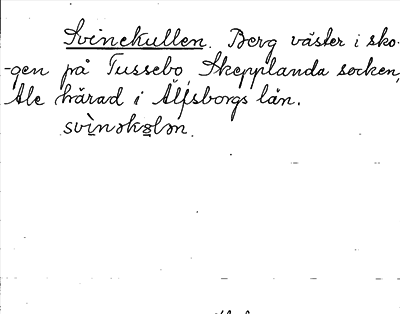 Svinekullen. Berg väster i sko-
-gen på Tussebo, Skepplanda socken,
Ale härad i Älfsborgs län.
svìnəkɷlən.